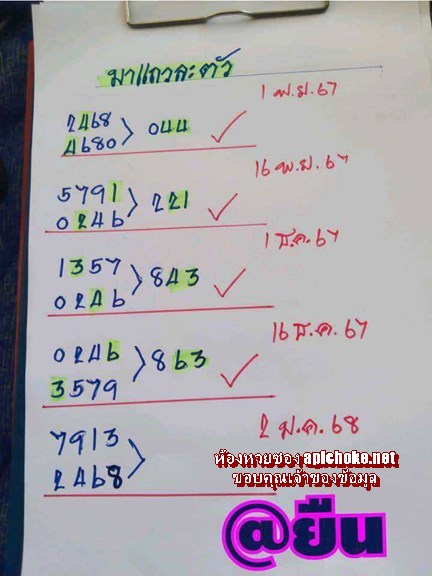 มาแถวละตัว
1 พ.ย.67
2468
4680 > 044 ✓
16 พ.ย. 67
5791
0246 > 221 ✓
1 ธ.ค. 67
1357
0246 > 843 ✓
16 ธ.ค. 67
0246
3579 > 863 ✓
2 ม.ค. 68
7913
2468 >
ห้องหวยซอง apichoke.net
ขอบคุณเจ้าของข้อมูล
@ยืน